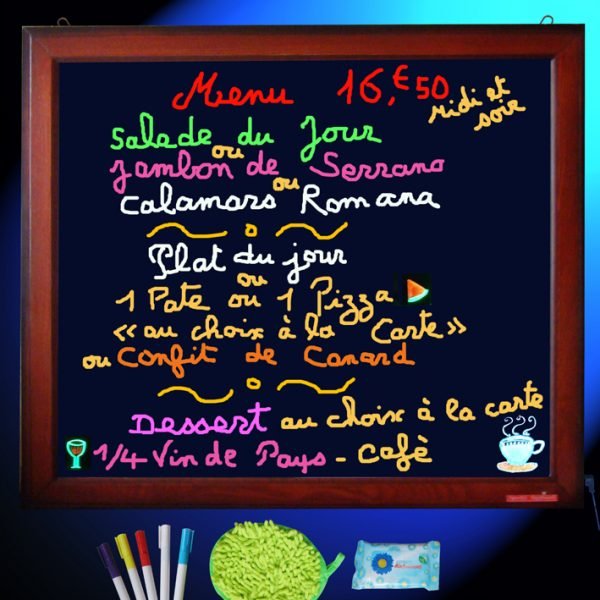 Menu 16,€50
Midi et
soir
Salade du Jour
ou
Jambon de Serrano
ou
Calamars Romana
Plat du jour
ou
1 Pate ou 1 Pizza
«au choix à la Carte»
ou Confit de Canard
Dessert au choix à la carte
1/4 Vin de Pays - Cafè